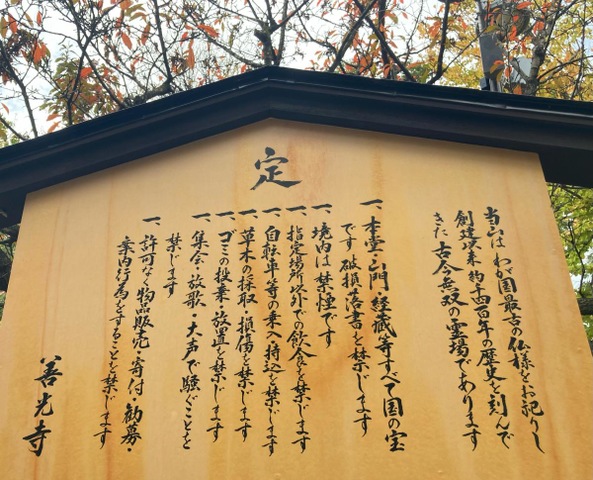 定
当山は わが国最古の仏様をお祀りし
創建以来 約千四百年の歴史を刻んで
きた 古今無双の霊場であります
一、本堂・山門・経蔵等すべて国の宝
です 破損落書を禁じます
一、境内は 禁煙です
一、指定場所以外での飲食を禁じます
一、自転車等の乗入・持込を禁じます
一、草木の採取・損傷を禁じます
一、ごみの投棄・放置を禁じます
一、集会・放歌・大声で騒ぐことを
禁じます
一、許可なく物品販売・寄付・勧募・
案内行為をすることを禁じます
善光寺